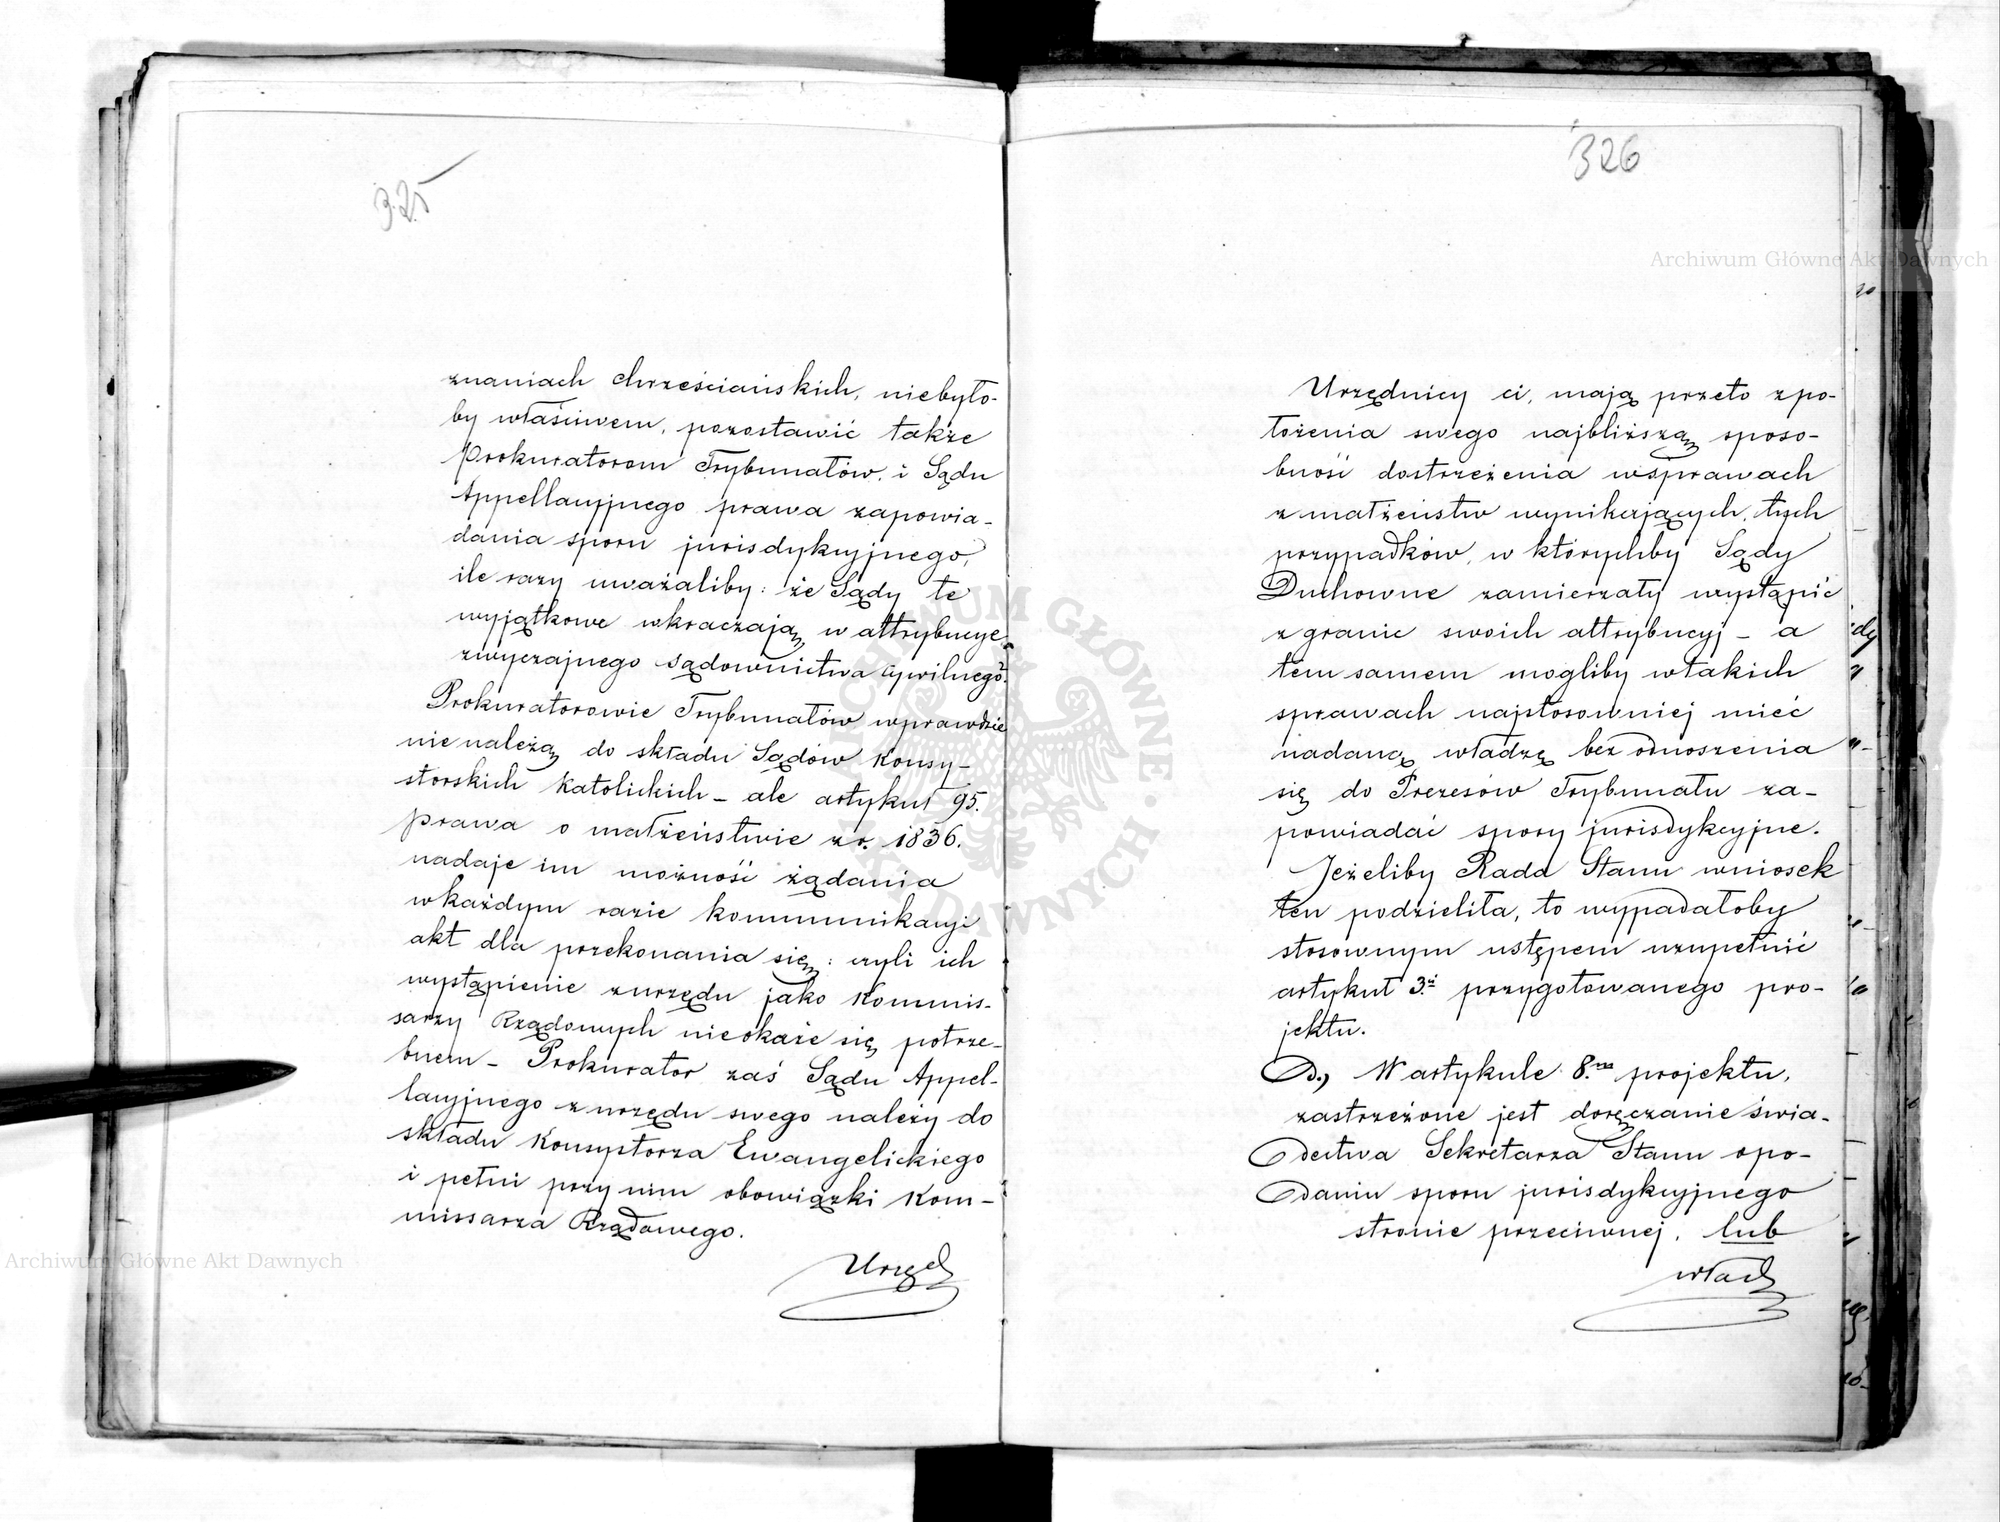 325
znaniach chrześciańskich, niebyło-
by właściwem, pozostawić także
Prokuratorom Trybunałów, i Sądu
Appellacyjnego prawa zapowia-
dania sporu jurisdykcyjnego,
ile razy uważaliby: że Sądy te
wyjątkowe wkraczają w attrybucye
zwyczajnego sądownictwa cywilnego.
Prokuratorowie Trybunałów wprawdzie
nie należą do składu Sądów Konsy-
storskich Katolickich – ale artykuł 95.
prawa o małżeństwie z r. 1836.
nadaje im możność żądania
w każdym razie kommunikacyi
akt dla przekonania się: czyli ich
wystąpienie z urzędu jako Kommis-
sarzy Rządowych nie okaże się potrze-
bnem – Prokurator zaś Sądu Appel-
lacyjnego z urzędu swego należy do
składu Konsystorza Ewangelickiego
i pełni przy nim obowiązki Kom-
missarza Rządowego.
Urzęd
326
Urzędnicy ci, mają przeto z po-
łożenia swego najbliższą sposo-
bność dostrzeżenia w sprawach
z małżeństw wynikających, tych
przypadków, w którychby Sądy
Duchowne zamierzały wystąpić
z granic swoich attrybucyj – a
tem samem mogliby w takich
sprawach najstosowniej mieć
nadaną władzę bez odnoszenia
się do Prezesów Trybunału za-
powiadać spory jurisdykcyjne.
Jeżeliby Rada Stanu wniosek
ten podzieliła, to wypadałoby
stosownym ustępem uzupełnić
artykuł 3.i przygotowanego pro-
jektu.
D.) W artykule 8.ma projektu,
zastrzeżone jest doręczanie świa-
dectwa Sekretarza Stanu o po-
daniu sporu jurisdykcyjnego
stronie przeciwnej, lub
wład
Archiwum Główne Akt Dawnych
Archiwum Główne Akt Dawnych
ARCHIWUM GŁÓWNE AKT DAWNYCH